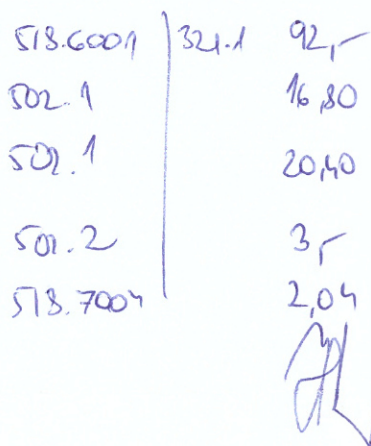 518.6001 321.1 92,-
502.1 16,80
502.1 20,40
502.2 3,-
518.7004 2,04